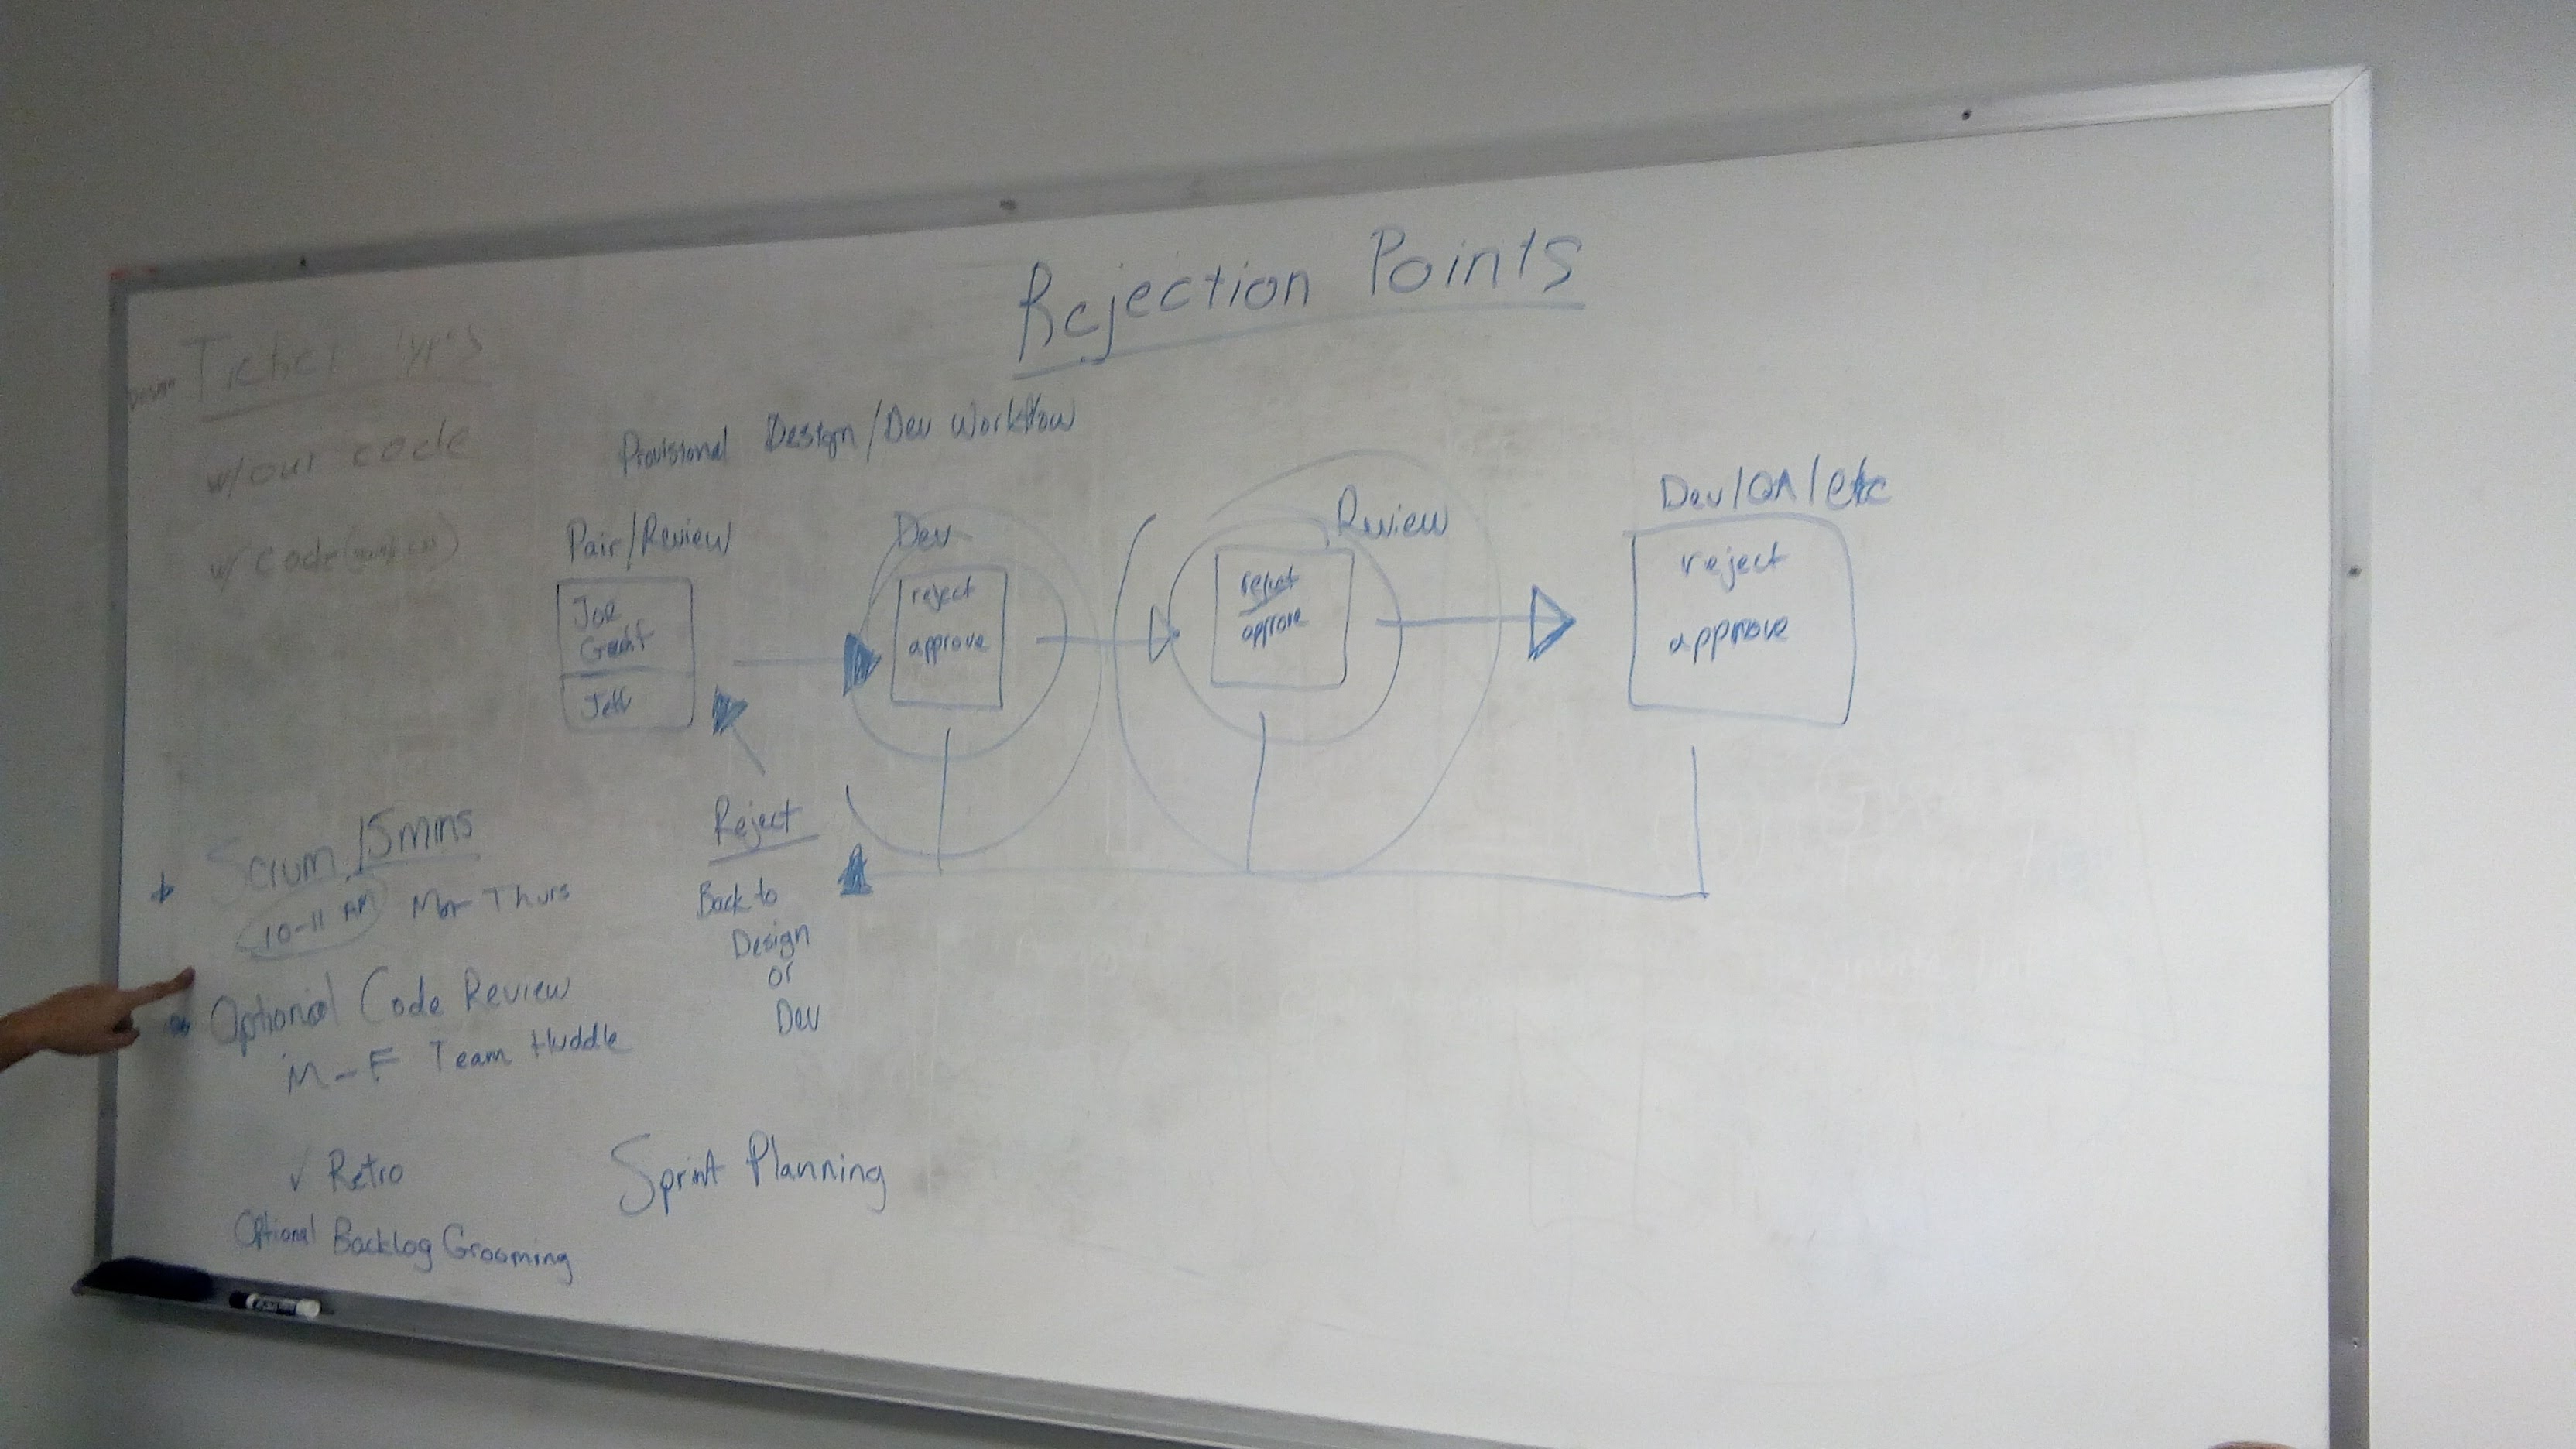 Rejection Points
Ticket Types
w/our code
w/ code
Provisional Design/Dev Workflow
Pair/Review
Joe
Jeff
Dev
reject
approve
Review
reject
approve
Dev/QA/etc
reject
approve
Reject
Back to
Design
or
Dev
Scrum 15mins
10-11 AM Mon-Thurs
Optional Code Review
M-F Team Huddle
✓ Retro
Sprint Planning
Optional Backlog Grooming